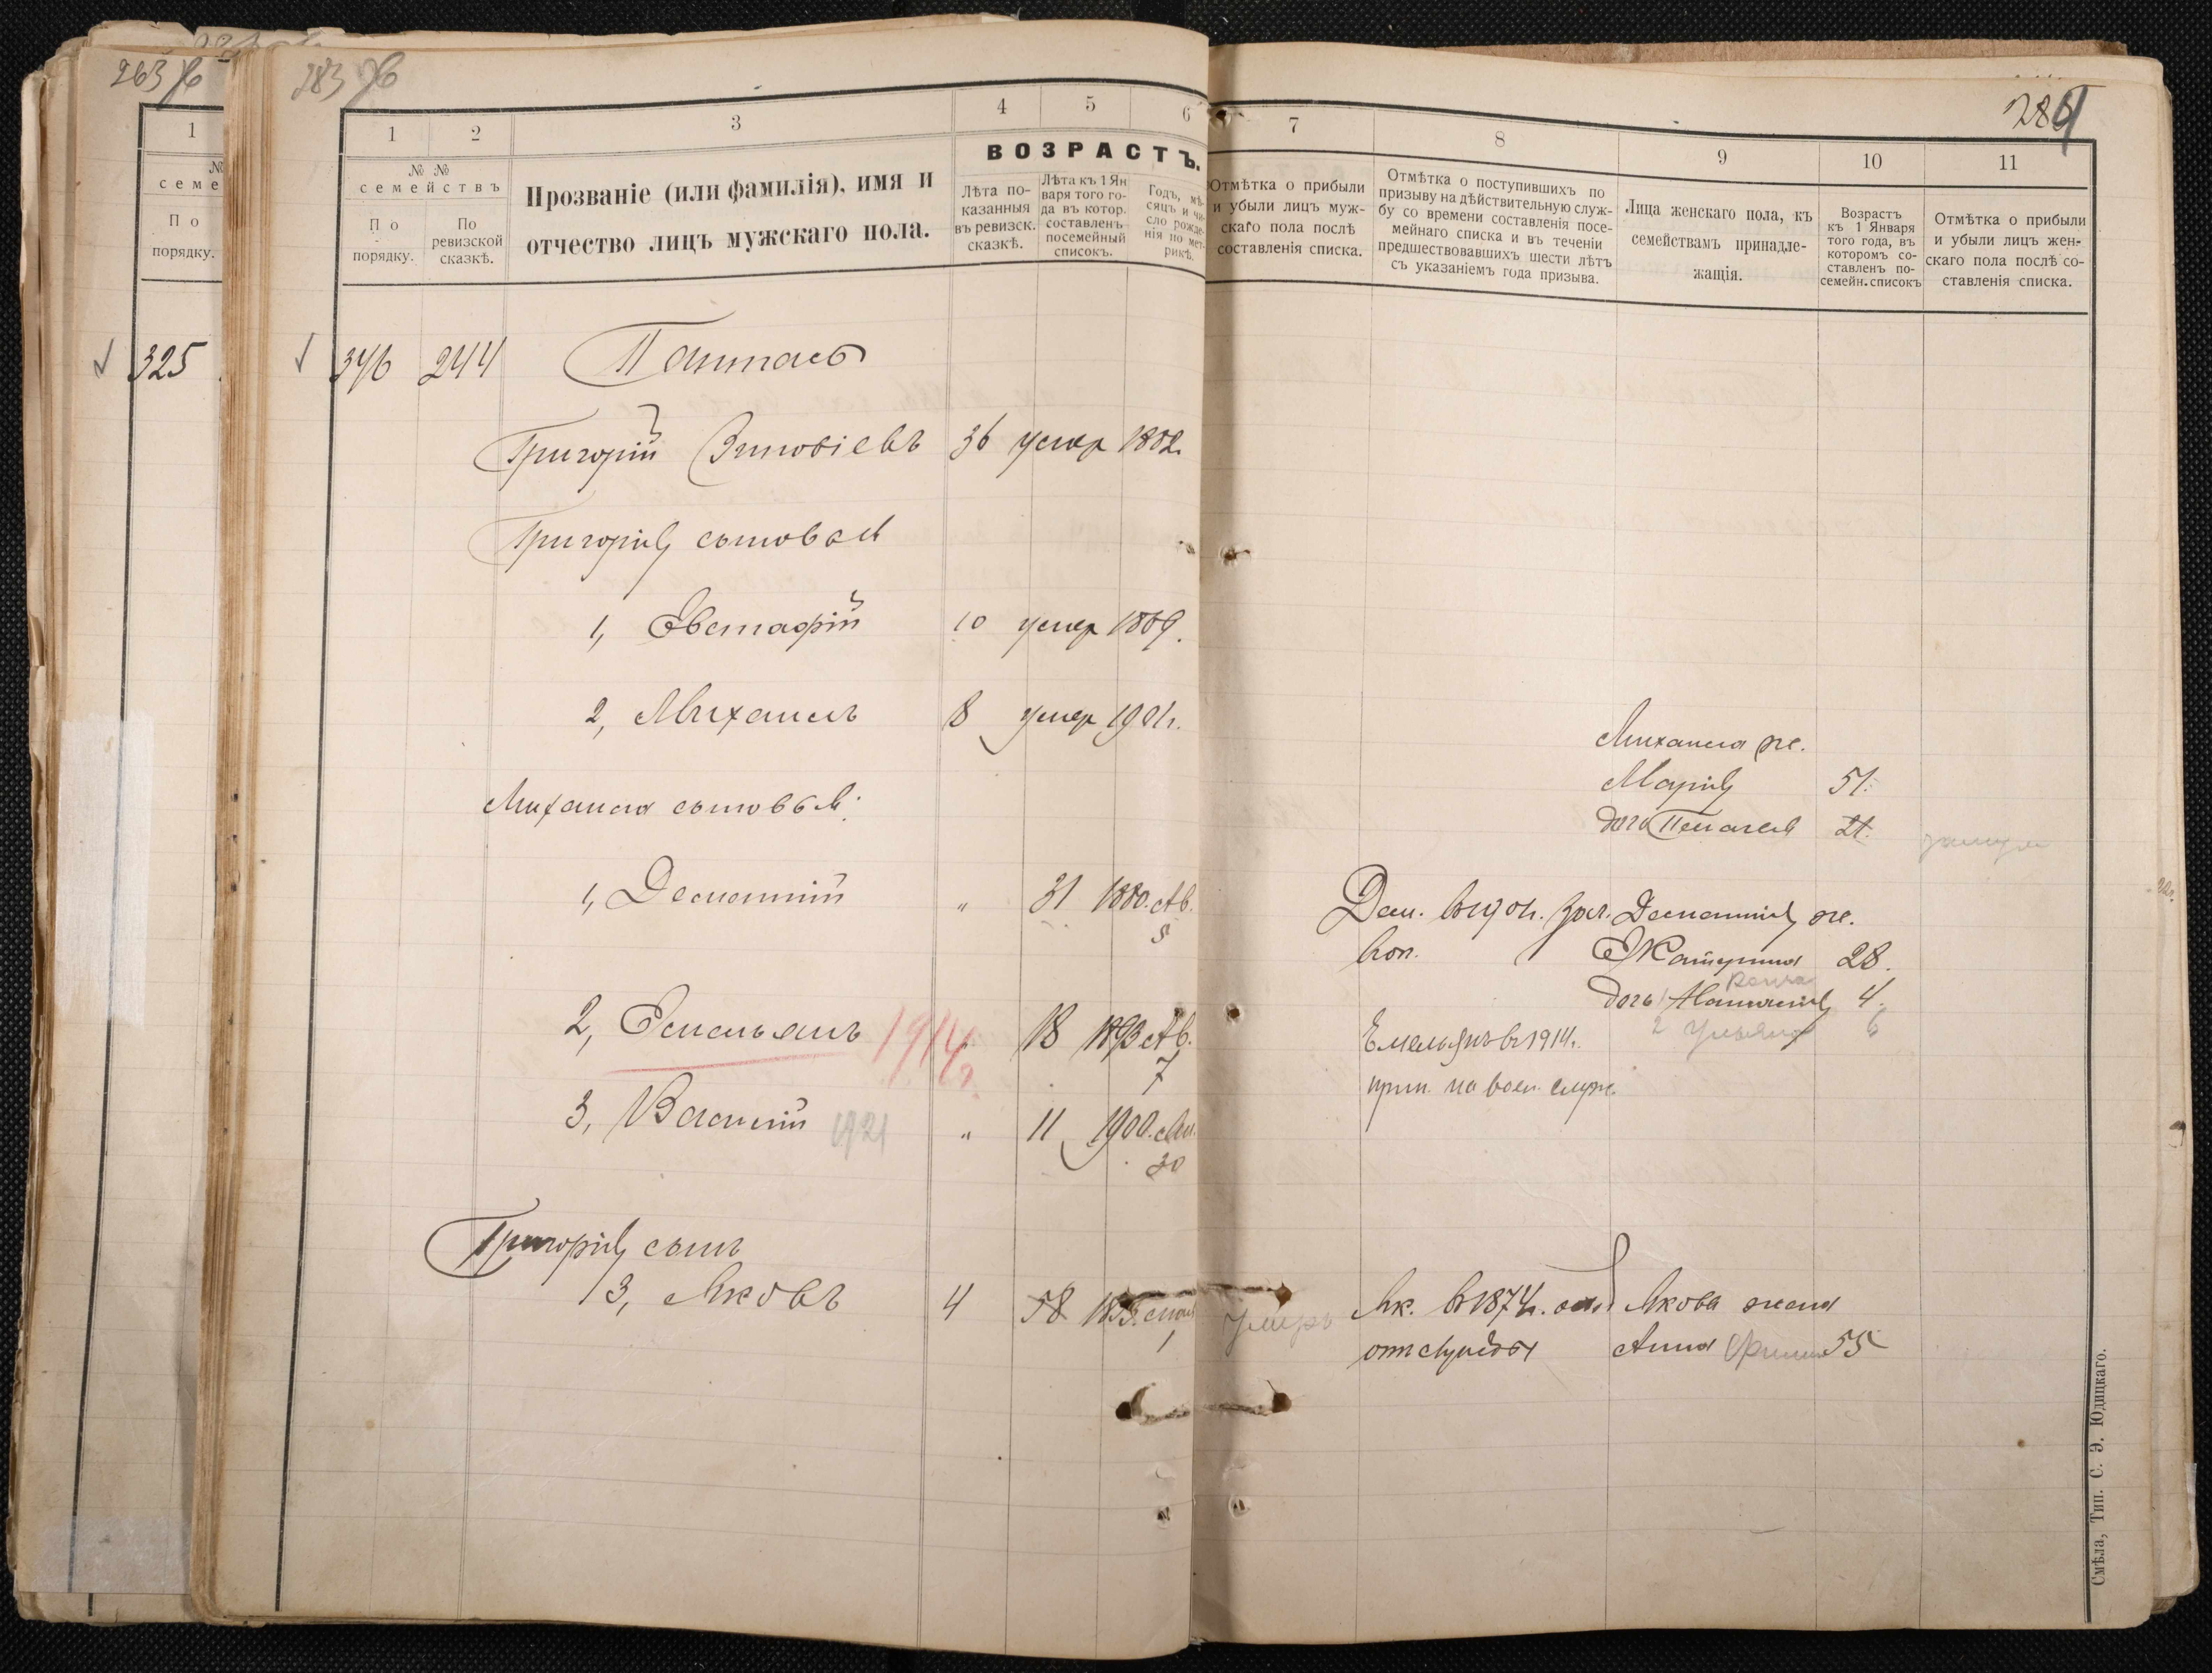 263
325
1
семе
По
порядку.
283
284
1
2
3
4
5
6
7
8
9
10
11
№ №
семействъ
По
порядку.
По
ревизской
сказкѣ.
Прозваніе (или фамилія), имя и
отчество лицъ мужскаго пола.
ВОЗРАСТЪ.
Лѣта по-
казанныя
въ ревизск.
сказкѣ.
Лѣта къ 1 Ян
варя того го-
да въ котор.
составленъ
посемейный
списокъ.
Годъ, мѣ-
сяцъ и чи-
сло рожде-
нія по мет-
рикѣ.
Отмѣтка о прибыли
и убыли лицъ муж-
скаго пола послѣ
составленія списка.
Отмѣтка о поступившихъ по
призыву на дѣйствительную служ-
бу со времени составленія посе-
мейнаго списка и въ теченіи
предшествовавшихъ шести лѣтъ
съ указаніемъ года призыва.
Лица женскаго пола, къ
семействамъ принадле-
жащія.
Возрастъ
къ 1 Января
того года, въ
которомъ со-
ставленъ по-
семейн. списокъ
Отмѣтка о прибыли
и убыли лицъ жен-
скаго пола послѣ со-
ставленія списка.
346 244
Григорій Зиновіевъ 36 умер 1882
Григорія сыновья
1, Евстафій 10 умер 1869.
2, Михаилъ 8 умер 1901г.
Михаила же.
Марія 51.
дочь Пелагея 21.
Михаила сыновья:
1, Дементій " 31 1880. Ав.
8
Дементія же.
Екатерина 28.
дочь 4.
2 Ульяна 6
2, Емельянъ 1914 " 18 1893 Ав.
7
Емельянъ въ 1914г.
прин. на воен. служ.
3, Василій 1921 " 11 1900.
30
Григорія сынъ
3, Яковъ 4 58
1
умеръ
Як. въ 1874г.
Якова жена
Анна 55
Смѣла, Тип. С. Э. Юдицкаго.